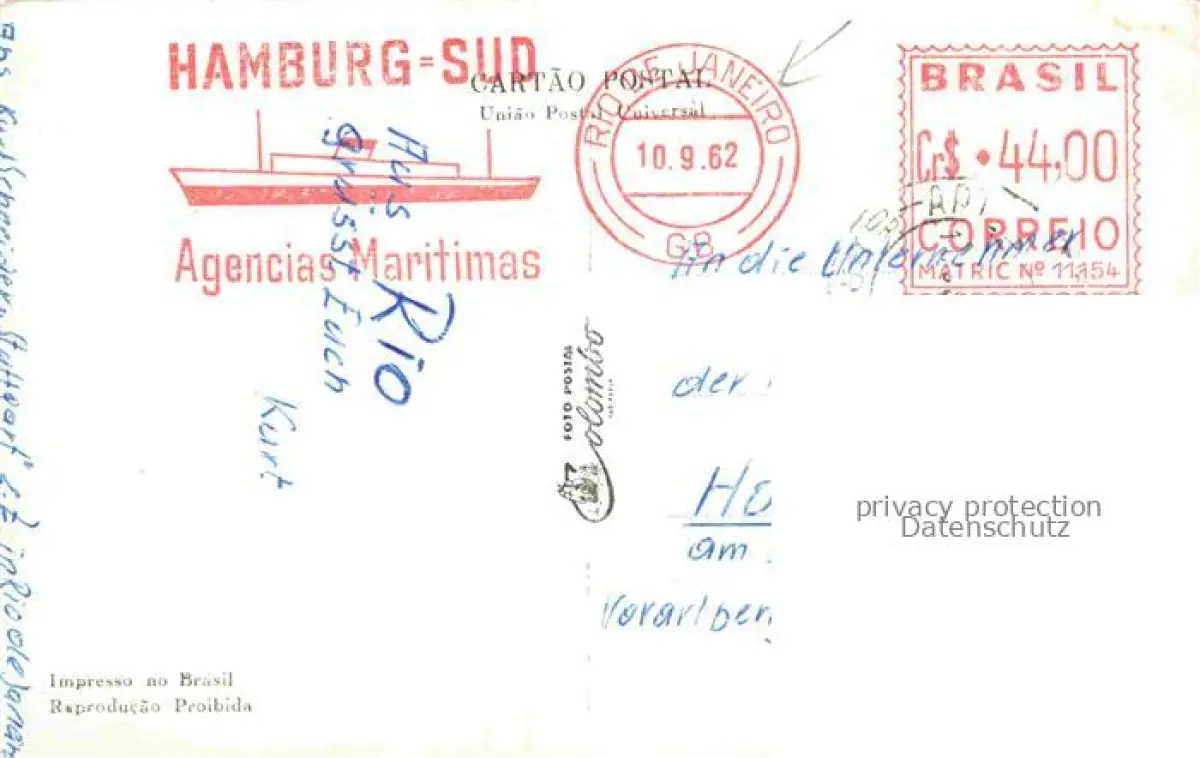 HAMBURG=SÜD
Agencias Maritimas
CARTÃO POSTAL
União Postal Universal
RIO DE JANEIRO
10.9.62
GB
BRASIL
Cr$ 44,00
CORREIO
MATRIC Nº 11154
Aus Rio
grüsst Euch
Kurt
Abs. Kurt Schneider Stuttgart z.Z. in Rio de Janeiro
FOTO POSTAL
Colombo
An die Unternehmer
der
am
Vorarlberg
privacy protection
Datenschutz
Impresso no Brasil
Reprodução Proibida